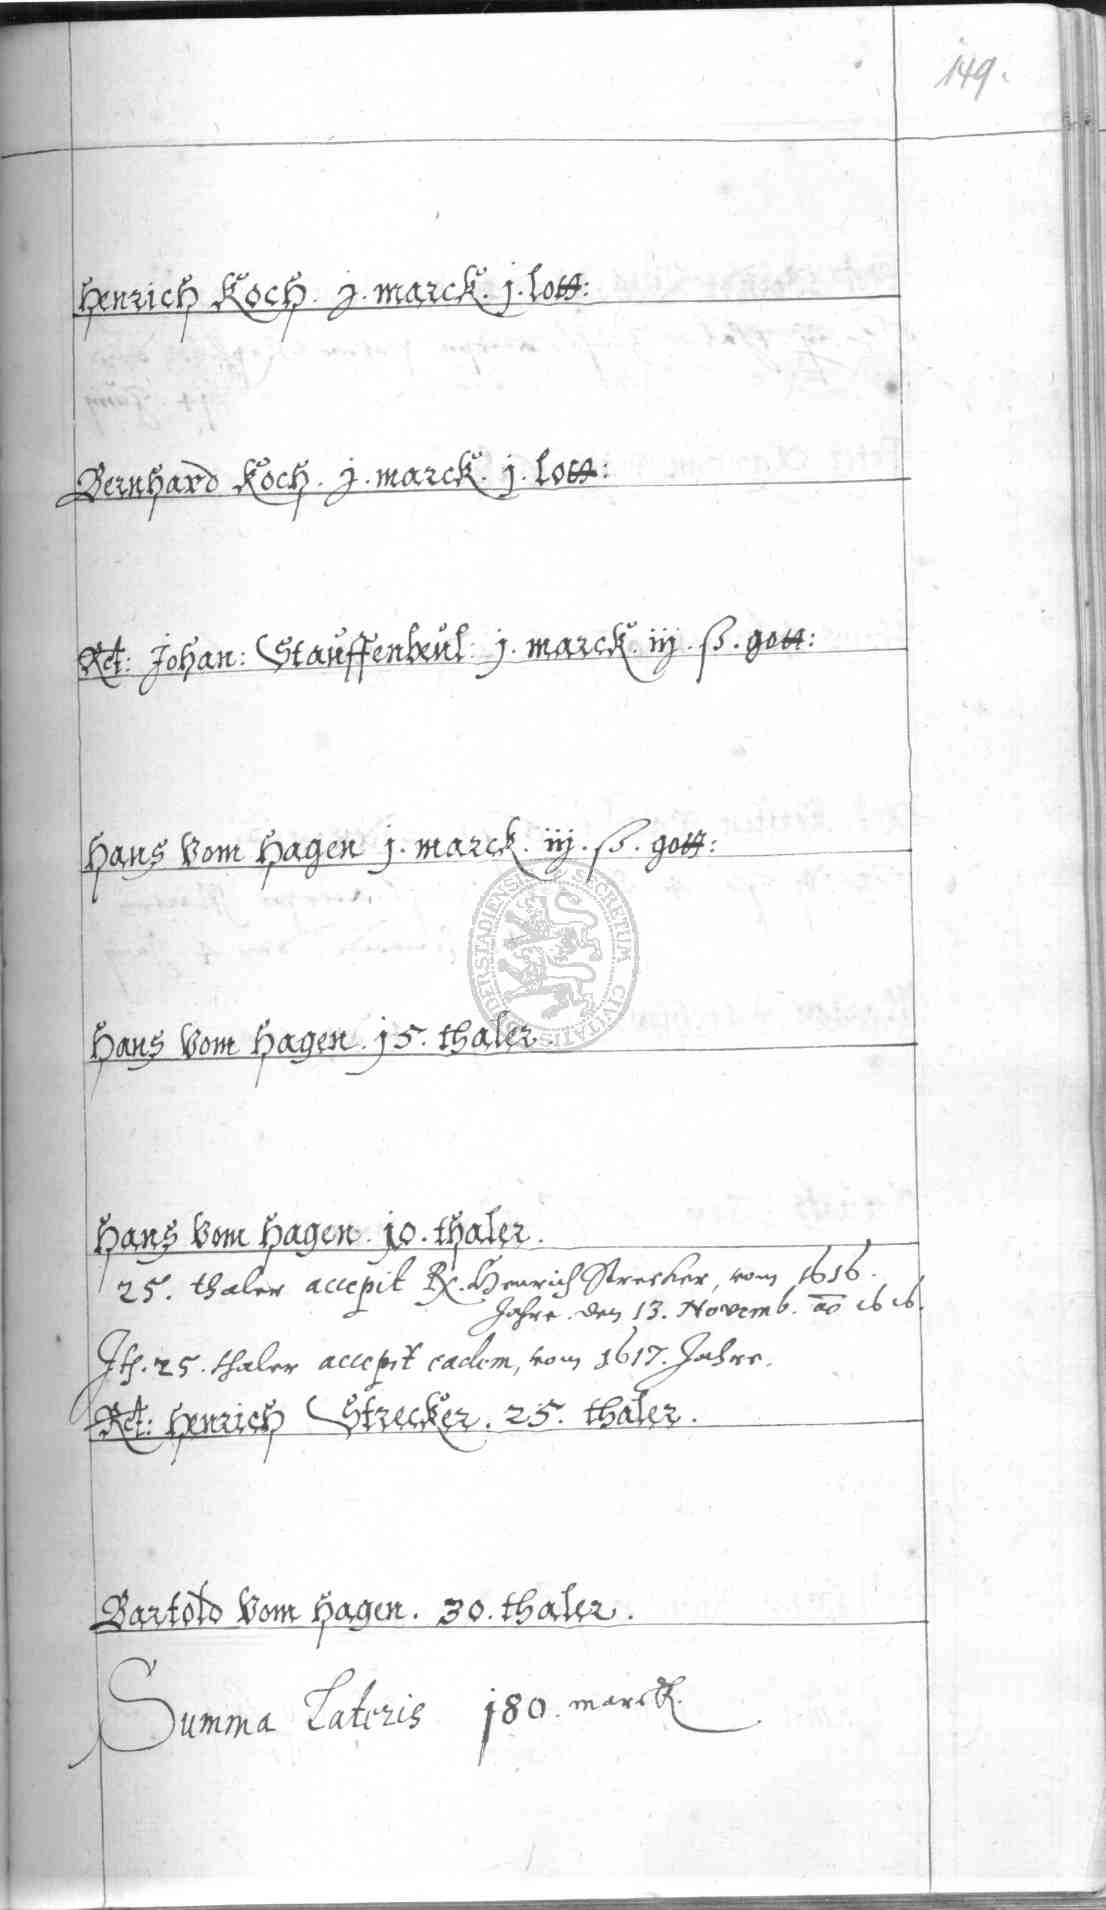 149.
Henrich Koch. j. marck. j. lott:
Bernhard Koch. j. marck. j. lott:
Rel: Johan: Stauffenbeul: j. marck. iij. ß. gott:
Hans Vom Hagen j. marck. iij. ß. gott:
SECRETUM CIVITATIS
Hans Vom Hagen. j5. thaler.
Hans Vom Hagen. j0. thaler.
25. thaler accepit Henrich Strecker, vom 1616.
Jahre. den 13. Novemb. ao 1616.
It. 25. thaler accepit eadem, vom 1617. Jahre.
Rel: Henrich Strecker. 25. thaler.
Bartold Vom Hagen. 30. thaler.
Summa Lateris j80. marck.